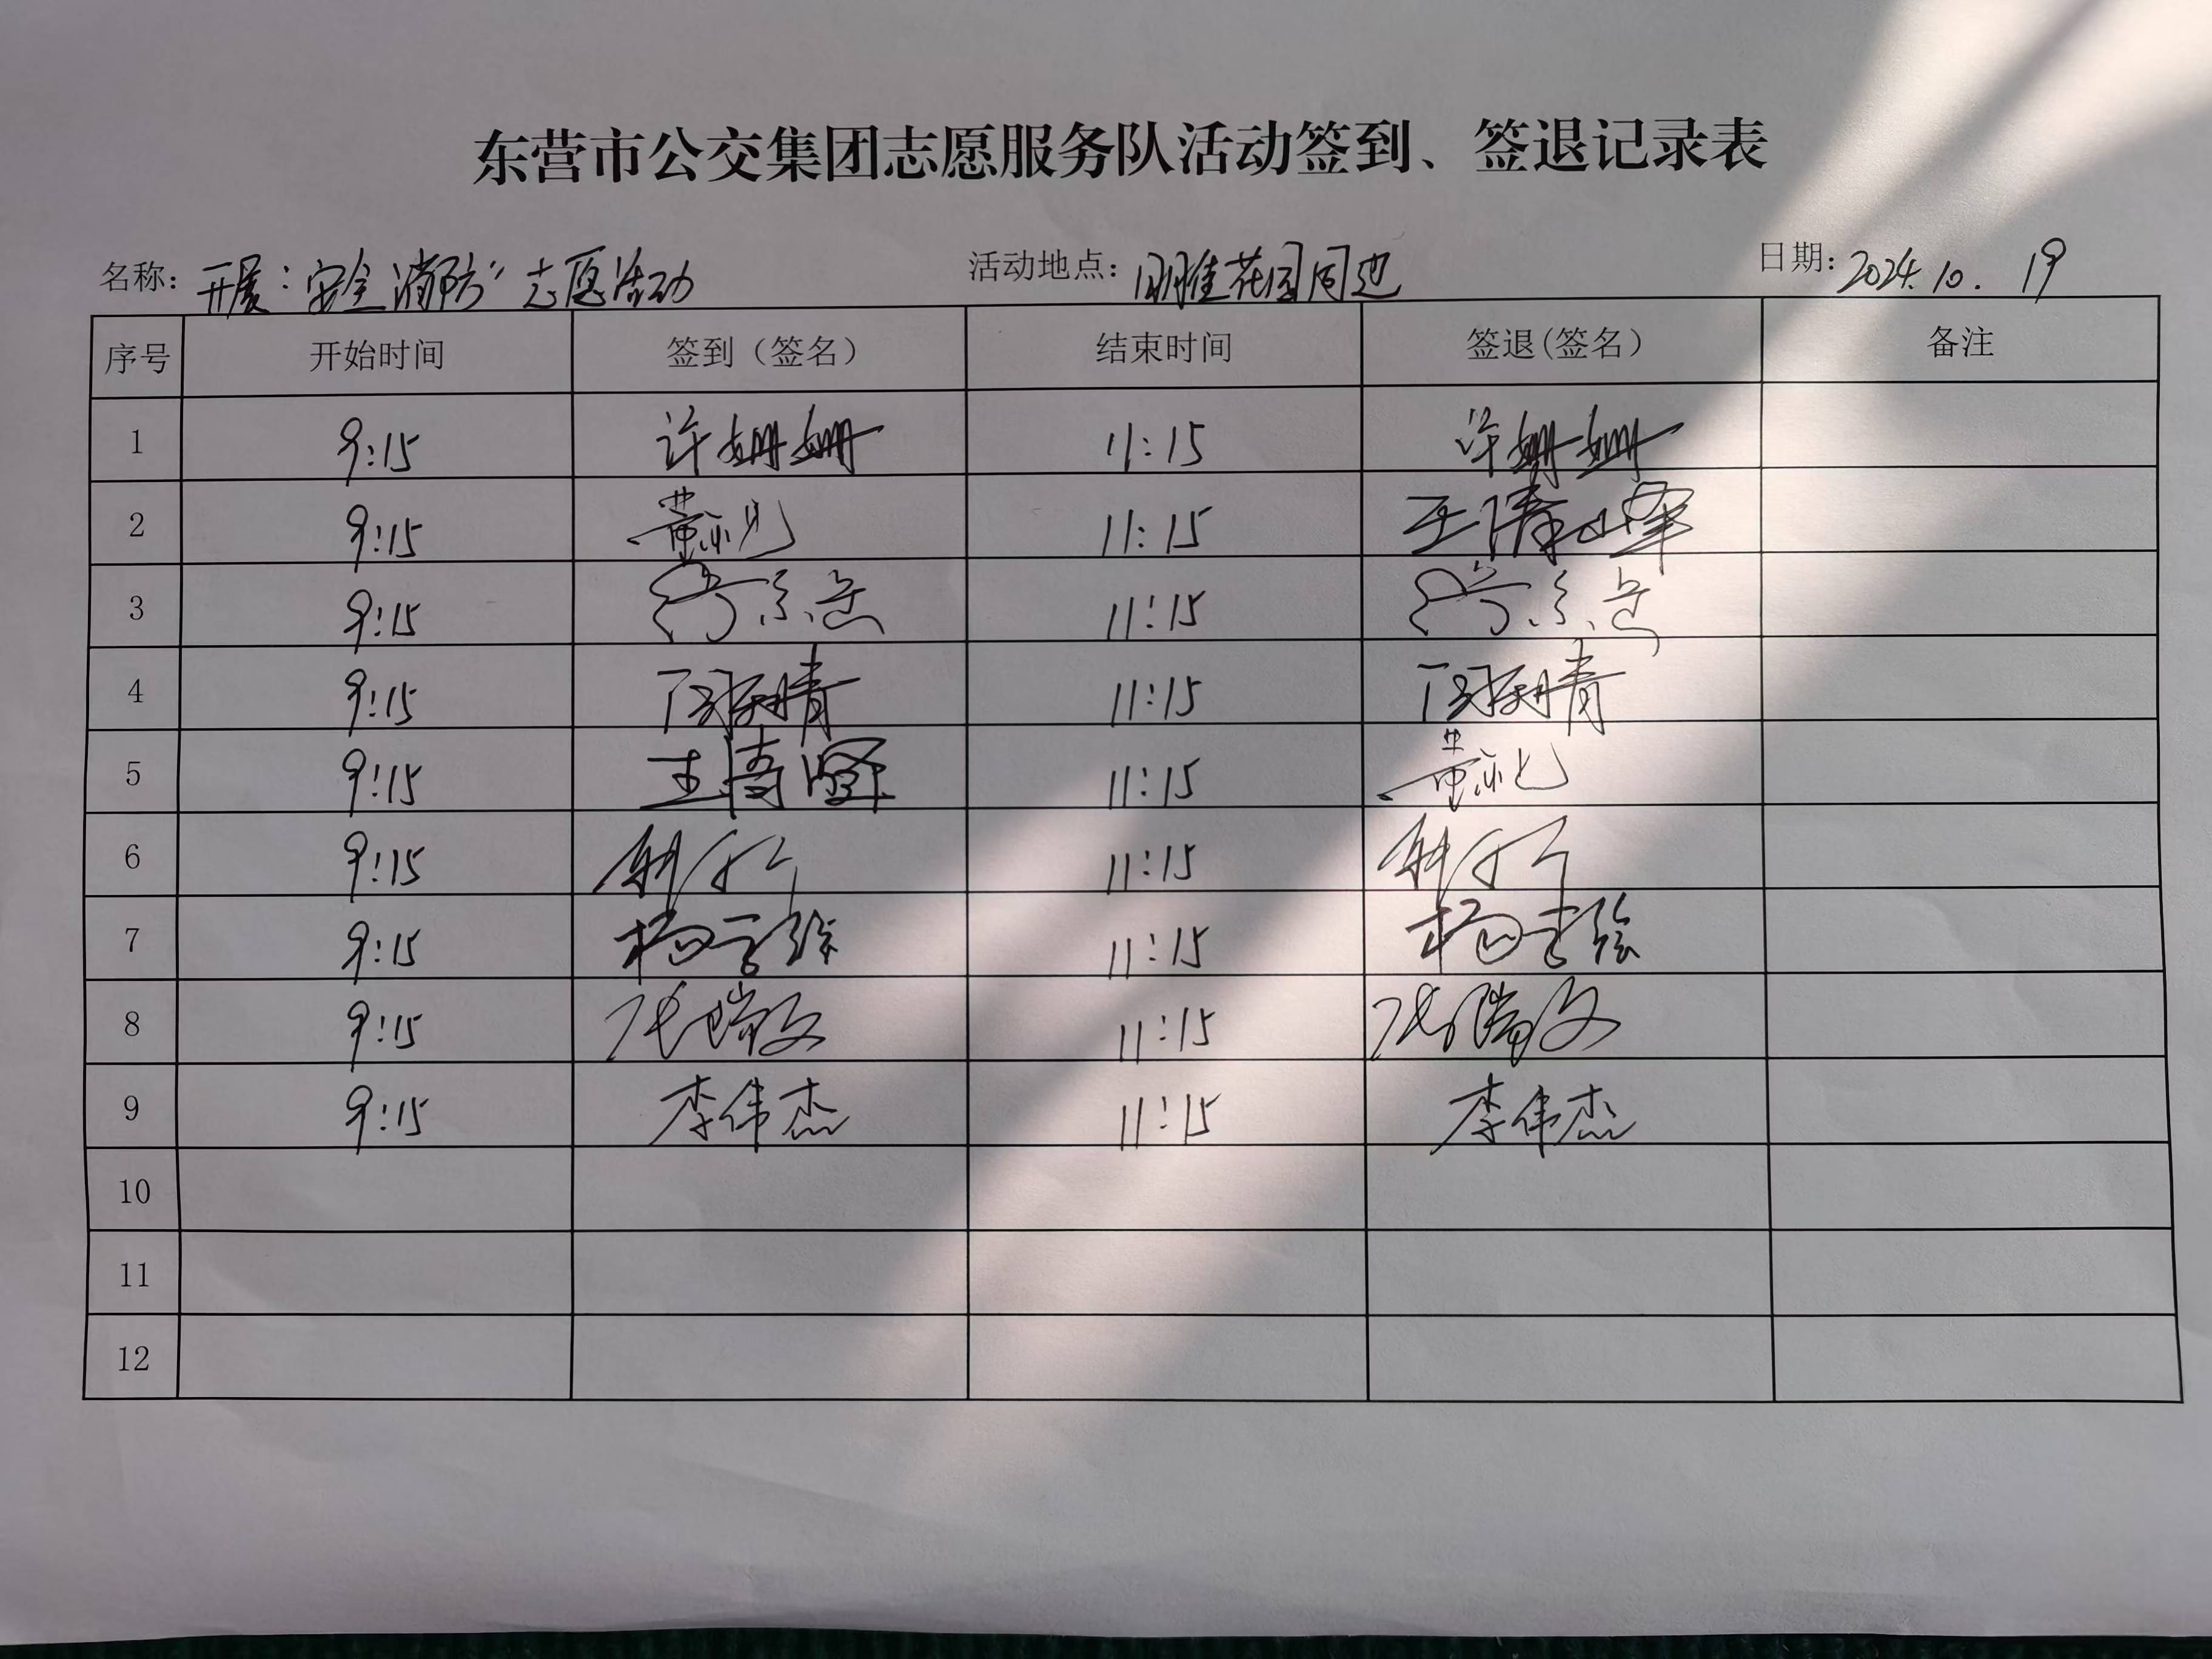 东营市公交集团志愿服务队活动签到、签退记录表
名称：开展：安全消防”志愿活动 活动地点：明雅花园周边 日期：2024.10.19
序号 开始时间 签到（签名） 结束时间 签退(签名） 备注
1 9:15 许姗姗 11:15 许姗姗
2 9:15 11:15 王清峰
3 9:15 11:15
4 9:15 11:15
5 9:15 11:15
6 9:15 11:15
7 9:15 11:15
8 9:15 张瑞文 11:15 张瑞文
9 9:15 李伟杰 11:15 李伟杰
10
11
12